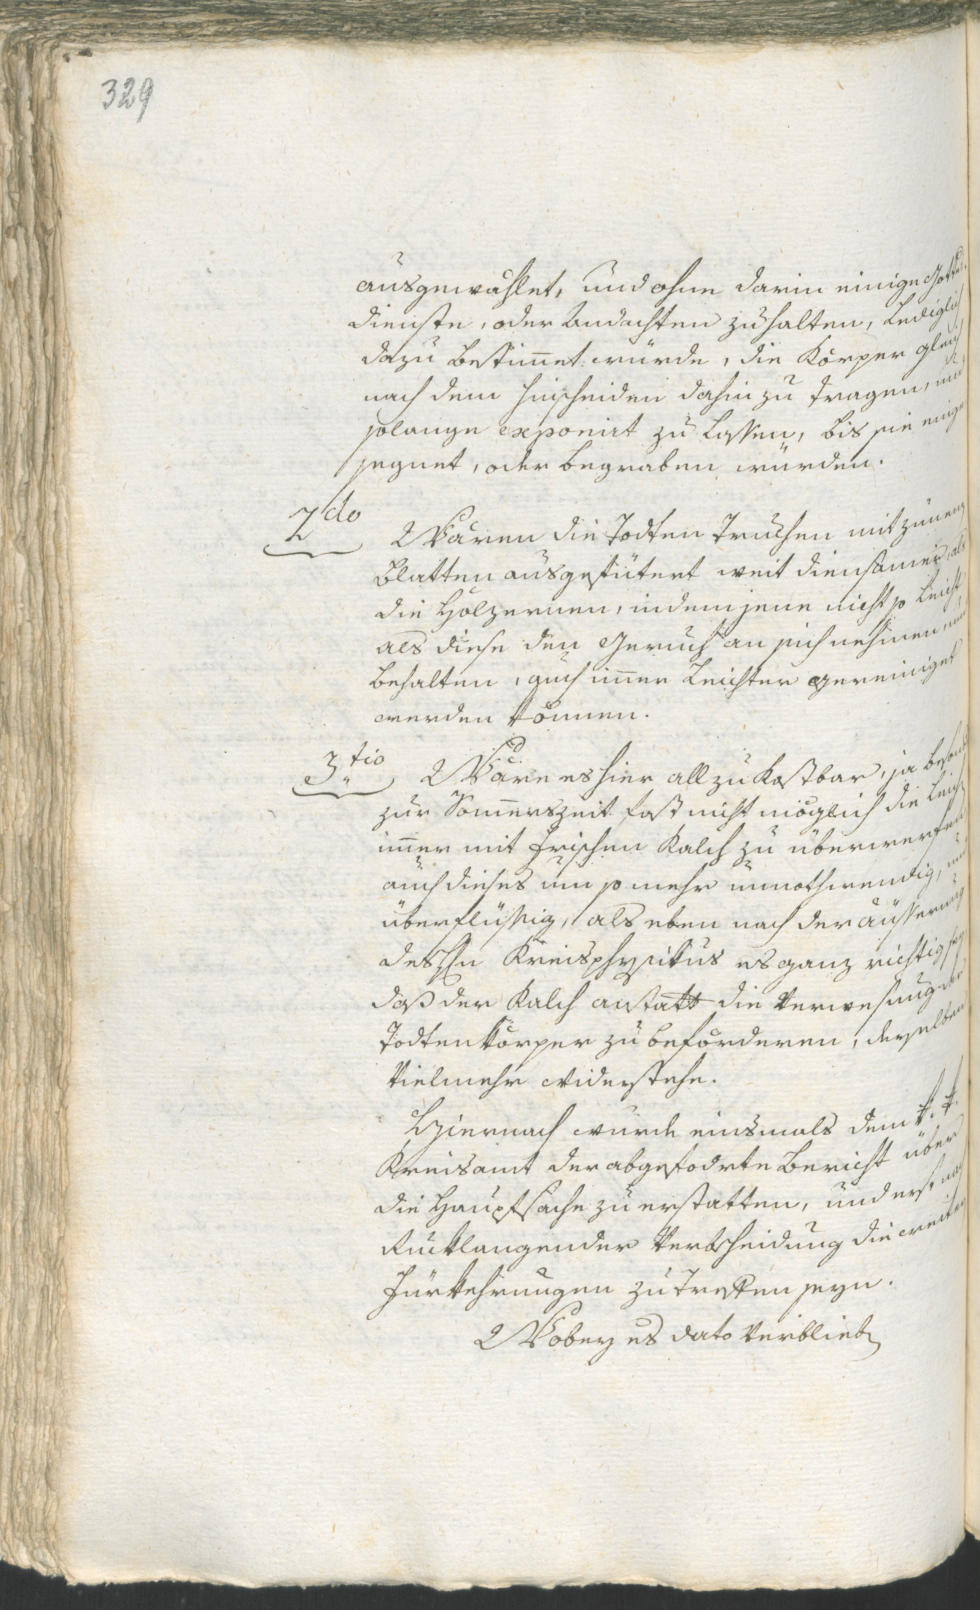 329
ausgewählet, und ohne darin einige Gottes
dienste, oder Andachten zuhalten, lediglich
dazu bestim̄et würde, die Körper gleich
nach dem hinscheiden dahin zu tragen, und
solange exponirt zu lassen, bis sie einge
segnet, oder begraben würden.
2do
Wären die Todten Truchen mit zünenen
Blatten ausgefütert weit diensamer, als
die Hölzernen, indem jene nicht so leicht
als diese den Geruch an sich nehmen, und
behalten, auch im̄er leichter gereiniget
werden können.
3tio
Wäre es hier allzu kostbar, ja besonders
zur Som̄erszeit fast nicht möglich die Leich
im̄er mit frischen Kalch zu überwerfen
auch dieses um so mehr unnothwendig, und
überflüssig, als eben nach der äusserung
des Hn Kreisphysikus es ganz richtig sey
daß der Kalch anstatt die Verwesung der
Todtenkörper zu beförderen, derselben
Vielmehr widerstehe.
Hiernach wurde einsmals dem k. k.
Kreisamt der abgefodrte Bericht über
die Hauptsache zu erstatten, und erst nach
Rucklangender Verbscheidung die weitere
Fürkehrungen zu treffen seyn.
Wobey es dato Verblieb